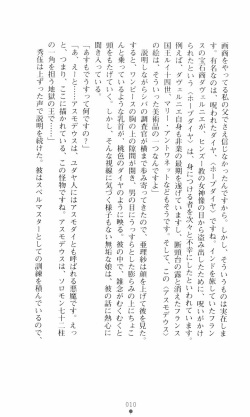 画商をやってる私の父でさえ信じなかったんですから。しかし、そういうものは実在しま
す。有名なのは、呪われたダイヤ、『ホープダイヤ』ですね。インドを旅していたフラン
スの宝石商ダヴェルニエが、ヒンズー教の女神像の目から盗み出したために、呪いがかけ
られたという〈ホープダイヤ〉は、身につける者を次々と不幸にしたといわれています。
例えば、ダヴェルニエ自身も非業の最期を遂げていますし、断頭台の露と消えたフランス
国王ルイ十四世、マリー・アントワネットなどもそうです。そして、この〈アスモデウス
の絵〉もそうした呪われた美術品の一つなんです」
説明しながらシバの調査官が横まで歩み寄ってきたので、亜理紗は頭を上げて彼を見た。
すると、ワンピースの胸の上の隙間が開き、男の目にうっすらとした膨らみの上にちょこ
んと乗っているような乳首が、桃色のダイヤのように映る。彼の中で、雑念がむくむくと
頭をもたげていく。しかし、そんな視線に気づく様子もない無垢な娘は、彼の話に熱心に
聞き入っている。
「あすもでうすって何ですの？」
「アスモデウスは、ユダヤ人にはアスモダイとも呼ばれる悪魔です。ええっ
と、つまり、ここに描かれている、この怪物ですね。アスモデウスは、ソロモン七十二柱
の一角を担う地獄の王で……」
秀伍は上ずった声で説明を続けた。彼はスペルマスターとしての訓練を積んでいるので、
010